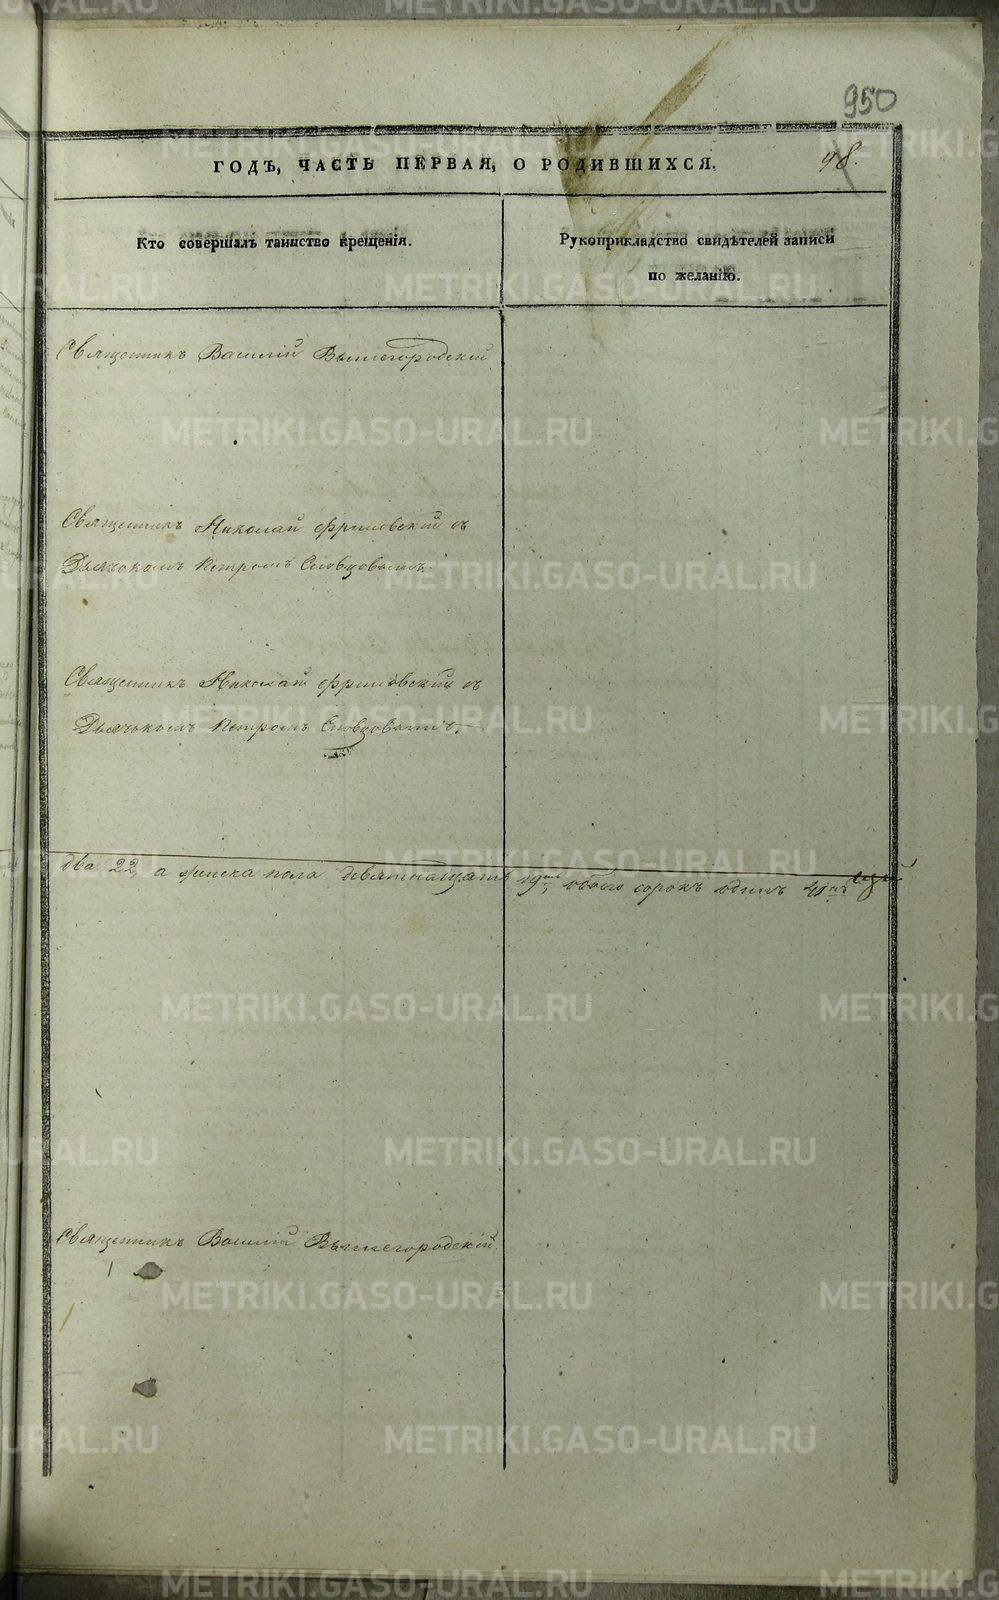 950
98.
ГОДЪ, ЧАСТЬ ПЕРВАЯ, О РОДИВШИХСЯ.
Кто совершалъ таинство крещенія.
Рукоприкладство свидѣтелей записи
по желанію.
Священникъ Василій Вышегородскій
Священникъ Николай Фриловскій съ
Дьячкомъ Петромъ Словцовымъ.
Священникъ Николай Фриловскій съ
Дьячкомъ Петромъ Словцовымъ.
два 22, а женска пола девятнадцать 19, обоего сорокъ одинъ 41нъ
Священникъ Василій Вышегородскій.
METRIKI.GASO-URAL.RU